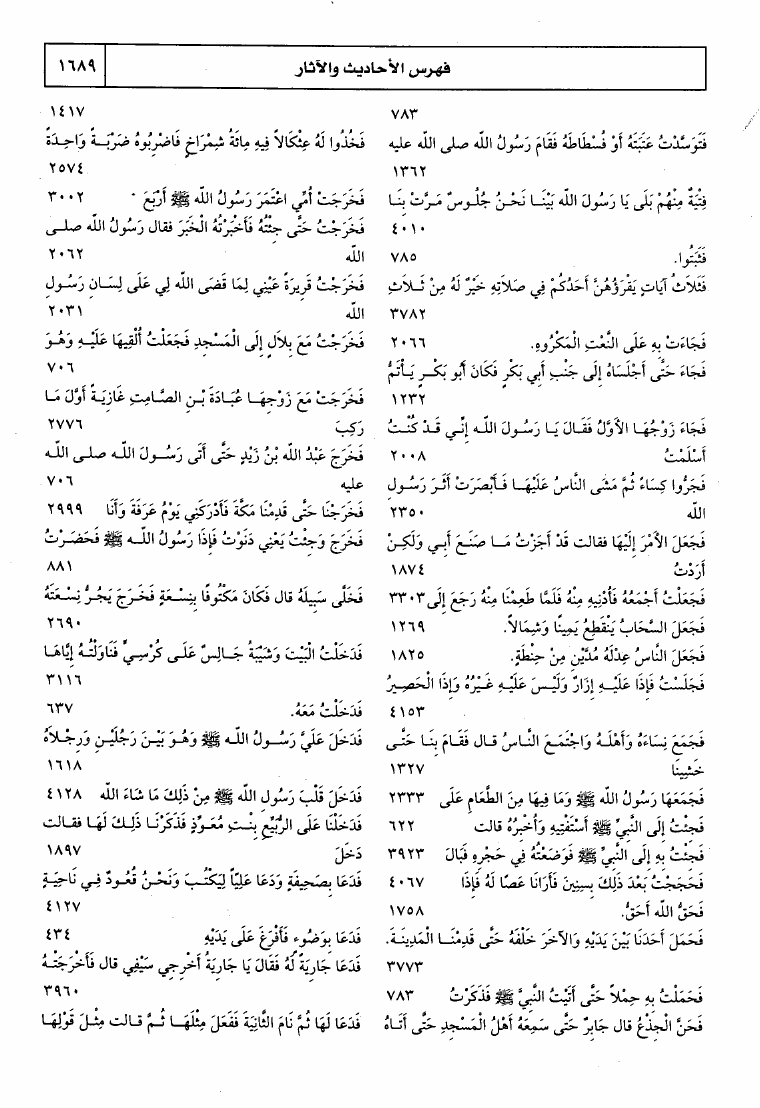 فهرس الأحاديث والآثار
١٦٨٩
٧٨٣
فَتَوَسَّدْتُ عَتَبَتَهُ أَوْ فُسْطَاطَهُ فَقَامَ رَسُولُ الله صلى الله عليه
١٣٦٢
فِتْيَةٌ مِنْهُمْ بَلَى يَا رَسُولَ الله بَيْنَـا نَحْنُ جُلُوسٌ مَـرَّتْ بِنَـا
٤٠١٠
فَثَبَتُوا. ٧٨٥
فَثَلَاثُ آيَاتٍ يَقْرَؤُهُنَّ أَحَدُكُمْ فِي صَلَاتِهِ خَيْرٌ لَهُ مِنْ ثَـلَاثِ
٣٧٨٢
فَجَاءَتْ بِهِ عَلَى النَّعْتِ الْمَكْرُوهِ. ٢٠٦٦
فَجَاءَ حَتَّى أَجْلَسَاهُ إِلَى جَنْبِ أَبِي بَكْرٍ فَكَانَ أَبُو بَكْـرٍ يَـأْتَمُّ
١٢٣٢
فَجَاءَ زَوْجُهَـا الأَوَّلُ فَقَـالَ يَـا رَسُـولَ اللَّـهِ إِنِّـي قَـدْ كُنْـتُ
أَسْلَمْتُ ٢٠٠٨
فَجَرُّوا كِسَاءً ثُمَّ مَشَى النَّاسُ عَلَيْهَـا فَـأَبْصَرَتْ أَثَـرَ رَسُـولِ
الله ٢٣٥٠
فَجَعَلَ الأَمْرَ إِلَيْهَا فقالت قَدْ أَجَزْتُ مَـا صَنَـعَ أَبِـي وَلَكِـنْ
أَرَدْتُ ١٨٧٤
فَجَعَلْتُ أَجْمَعُهُ فَأُدْنِيهِ مِنْهُ فَلَمَّا طَعِمْنَا مِنْهُ رَجَعَ إِلَى ٣٣٠٣
فَجَعَلَ السَّحَابُ يَنْقَطِعُ يَمِينًا وَشِمَالاً. ١٢٦٩
فَجَعَلَ النَّاسُ عِدْلَهُ مُدَّيْنِ مِنْ حِنْطَةٍ. ١٨٢٥
فَجَلَسْتُ فَإِذَا عَلَيْـهِ إِزَارٌ وَلَيْـسَ عَلَيْـهِ غَيْـرُهُ وَإِذَا الْحَصِيـرُ
٤١٥٣
فَجَمَعَ نِسَاءَهُ وَأَهْلَـهُ وَاجْتَمَـعَ النَّـاسُ قـال فَقَـامَ بِنَـا حَتَّـى
خَشِينَا ١٣٢٧
فَجَمَعَهَا رَسُولُ الله ﷺ وَمَا فِيهَا مِنَ الطَّعَامِ عَلَى ٢٣٣٣
فَجِئْتُ إِلَى النَّبِيِّ ﷺ أَسْتَفْتِيهِ وَأُخْبِرُهُ قالت ٦٢٢
فَجِئْتُ بِهِ إِلَى النَّبِيِّ ﷺ فَوَضَعْتُهُ فِي حَجْرِهِ فَبَالَ ٣٩٢٣
فَحَجَجْتُ بَعْدَ ذَلِكَ بِسِنِينَ فَأَرَانَا عَصًا لَهُ فَإِذَا ٤٠٦٧
فَحَقُّ الله أَحَقُّ. ١٧٥٨
فَحَمَلَ أَحَدَنَا بَيْنَ يَدَيْهِ وَالآخَرَ خَلْفَهُ حَتَّى قَدِمْنَـا الْمَدِينَـةَ.
٣٧٧٣
فَحَمَلْتُ بِهِ حِمْلاً حَتَّى أَتَيْتُ النَّبِيَّ ﷺ فَذَكَرْتُ ٧٨٣
فَحَنَّ الْجِذْعُ قال جَابِرٌ حَتَّى سَمِعَهُ أَهْلُ الْمَسْجِدِ حَتَّى أَتَـاهُ
١٤١٧
فَخُذُوا لَهُ عِثْكَالاً فِيهِ مِائَةُ شِمْرَاخٍ فَاضْرِبُوهُ ضَرْبَـةً وَاحِـدَةً
٢٥٧٤
فَخَرَجَتْ أُمِّي اعْتَمَرَ رَسُولُ الله ﷺ أَرْبَعَ ٣٠٠٢
فَخَرَجْتُ حَتَّى جِئْتُهُ فَأَخْبَرْتُهُ الْخَبَرَ فقال رَسُولُ الله صلـى
الله ٢٠٦٢
فَخَرَجْتُ قَرِيرَةً عَيْنِي لِمَا قَضَى الله لِي عَلَى لِسَـانِ رَسُـولِ
الله ٢٠٣١
فَخَرَجْتُ مَعَ بِلَالٍ إِلَى الْمَسْجِدِ فَجَعَلْتُ أُلْقِيهَا عَلَيْـهِ وَهُـوَ
٧٠٦
فَخَرَجَتْ مَعَ زَوْجِهَـا عُبَـادَةَ بْـنِ الصَّـامِتِ غَازِيَـةً أَوَّلَ مَـا
رَكِبَ ٢٧٧٦
فَخَرَجَ عَبْدُ الله بْنُ زَيْدٍ حَتَّى أَتَى رَسُـولَ اللَّـهِ صلـى اللـه
عليه ٧٠٦
فَخَرَجْنَا حَتَّى قَدِمْنَا مَكَّةَ فَأَدْرَكَنِي يَوْمُ عَرَفَةَ وَأَنَا ٢٩٩٩
فَخَرَجَ وَجِئْتُ يَعْنِي دَنَوْتُ فَإِذَا رَسُولُ اللَّـهِ ﷺ فَحَضَـرْتُ
٨٨١
فَخَلَّى سَبِيلَهُ قال فَكَانَ مَكْتُوفًا بِنِسْـعَةٍ فَخَـرَجَ يَجُـرُّ نِسْـعَتَهُ
٢٦٩٠
فَدَخَلْتُ الْبَيْتَ وَشَيْبَةُ جَـالِسٌ عَلَـى كُرْسِـيٍّ فَنَاوَلْتُـهُ إِيَّاهَـا
٣١١٦
فَدَخَلْتُ مَعَهُ. ٦٣٧
فَدَخَلَ عَلَيَّ رَسُـولُ اللَّـهِ ﷺ وَهُـوَ بَيْـنَ رَجُلَيْـنِ وَرِجْـلَاهُ
١٦١٨
فَدَخَلَ قَلْبَ رَسُولِ الله ﷺ مِنْ ذَلِكَ مَا شَاءَ الله ٤١٢٨
فَدَخَلْنَا عَلَى الرُّبَيِّعِ بِنْـتِ مُعَـوِّذٍ فَذَكَرْنَـا ذَلِـكَ لَهَـا فقـالت
دَخَلَ ١٨٩٧
فَدَعَا بِصَحِيفَةٍ وَدَعَا عَلِيّاً لِيَكْتُـبَ وَنَحْـنُ قُعُـودٌ فِـي نَاحِيَـةٍ
٤١٢٧
فَدَعَا بِوَضُوءٍ فَأَفْرَغَ عَلَى يَدَيْهِ ٤٣٤
فَدَعَا جَارِيَةً لَهُ فَقَالَ يَا جَارِيَةُ أَخْرِجِي سَيْفِي قال فَأَخْرَجَتْـهُ
٣٩٦٠
فَدَعَا لَهَا ثُمَّ نَامَ الثَّانِيَةَ فَفَعَلَ مِثْلَهَـا ثُـمَّ قـالت مِثْـلَ قَوْلِهَـا